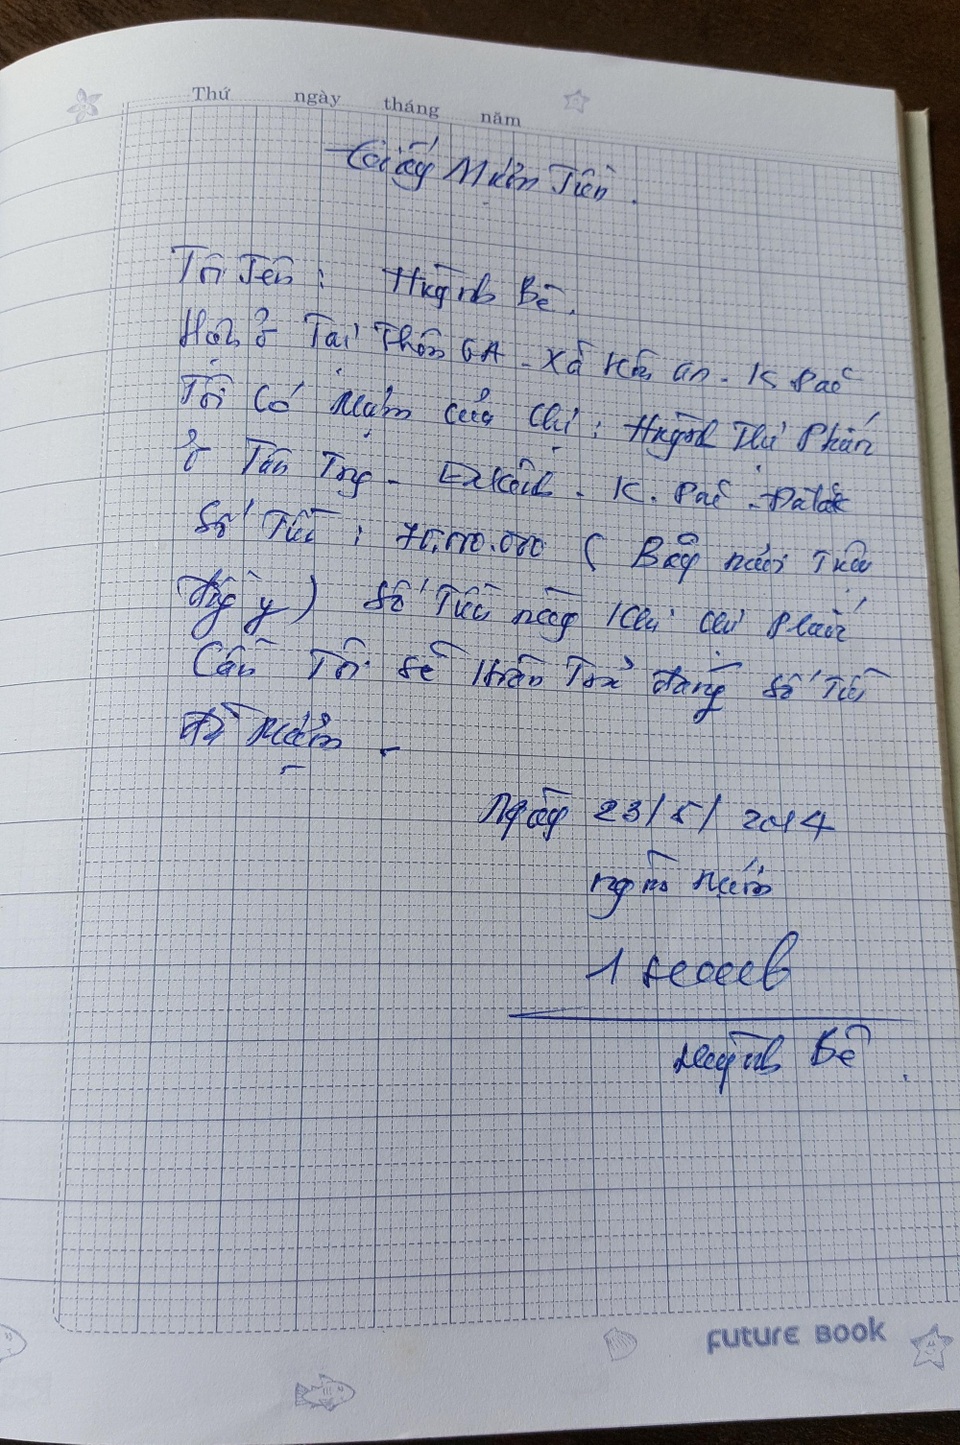 Thứ ngày tháng năm
Giấy Mượn Tiền.
Tôi Tên: Huỳnh Bê.
Hiện ở Tại Thôn 6A - Xã - K Pắc
Tôi Có Mượn Của Chị: Huỳnh Thị Phấn
ở Tân - - K. Pắc - Đắk Lắk
Số Tiền: (Bảy mươi Triệu
đồng y) Số Tiền này Khi chị Phấn
Cần Tôi sẽ Hoàn Trả đúng số Tiền
đã Mượn.
Ngày 23/5/2014
người mượn
Huỳnh Bê
FUTURE BOOK